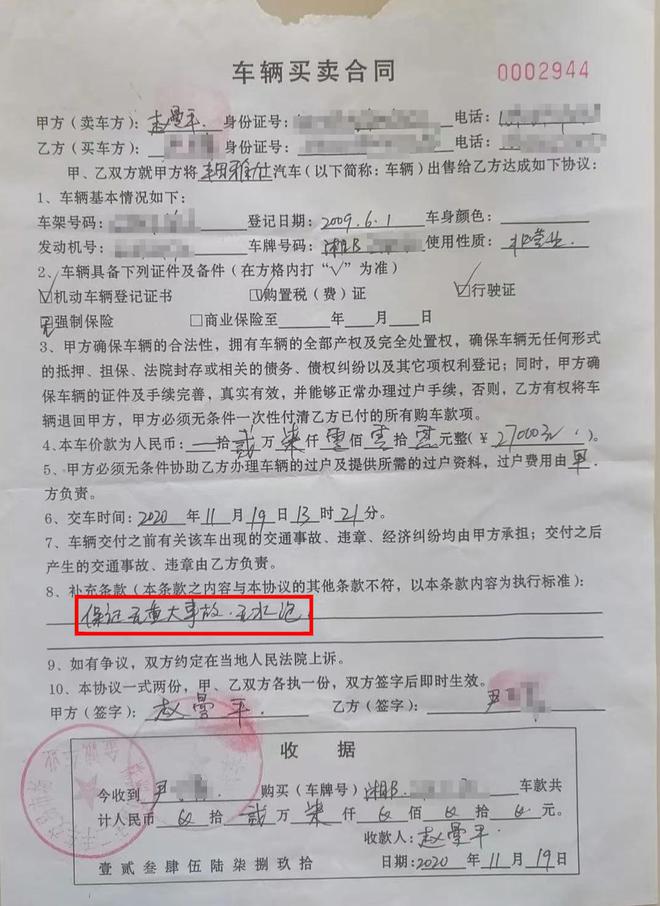 车辆买卖合同
0002944
甲方（卖车方）：赵曼平 身份证号： 电话：
乙方（买车方）： 身份证号： 电话：
甲、乙双方就甲方将丰田雅仕汽车（以下简称：车辆）出售给乙方达成如下协议：
1、车辆基本情况如下：
车架号码： 登记日期：2009.6.1 车身颜色：
发动机号： 车牌号码：湘B 使用性质：非营业.
2、车辆具备下列证件及备件（在方格内打“√”为准）
☑机动车辆登记证书 ☑购置税（费）证 ☑行驶证
☑强制保险 □商业保险至 年 月 日
3、甲方确保车辆的合法性，拥有车辆的全部产权及完全处置权，确保车辆无任何形式
的抵押、担保、法院封存或相关的债务、债权纠纷以及其它项权利登记；同时，甲方确
保车辆的证件及手续完善，真实有效，并能够正常办理过户手续，否则，乙方有权将车
辆退回甲方，甲方必须无条件一次性付清乙方已付的所有购车款项。
4、本车价款为人民币：一拾贰万柒仟零佰零拾零元整（￥27000元）。
5、甲方必须无条件协助乙方办理车辆的过户及提供所需的过户资料，过户费用由甲.
方负责。
6、交车时间：2020年11月19日13时21分。
7、车辆交付之前有关该车出现的交通事故、违章、经济纠纷均由甲方承担；交付之后
产生的交通事故、违章由乙方负责。
8、补充条款（本条款之内容与本协议的其他条款不符，以本条款内容为执行标准）：
保证无重大事故.无水泡
9、如有争议，双方约定在当地人民法院上诉。
10、本协议一式两份，甲、乙双方各执一份，双方签字后即时生效。
甲方（签字）：赵曼平. 乙方（签字）：尹
收 据
今收到 尹 购买（车牌号）湘B 车款共
计人民币 拾贰万柒仟 佰 拾 元。
收款人：赵曼平
壹贰叁肆伍陆柒捌玖拾 日期：2020年11月19日